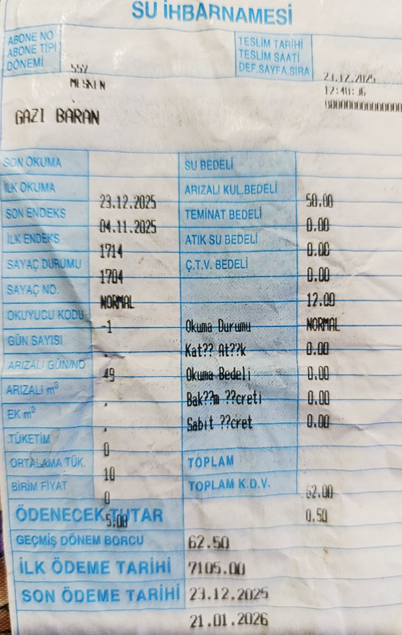 SU İHBARNAMESİ
ABONE NO
ABONE TİPİ
DÖNEMİ
557
MESKEN
TESLİM TARİHİ
TESLİM SAATİ
DEF.SAYFA.SIRA
23.12.2025
12:40:36
GAZI BARAN
SON OKUMA
SU BEDELİ
İLK OKUMA
ARIZALI KUL.BEDELİ
23.12.2025
50.00
SON ENDEKS
TEMİNAT BEDELİ
04.11.2025
0.00
İLK ENDEKS
ATIK SU BEDELİ
1714
0.00
SAYAÇ DURUMU
Ç.T.V. BEDELİ
1704
0.00
SAYAÇ NO.
NORMAL
12.00
OKUYUCU KODU
-1
Okuma Durumu
NORMAL
GÜN SAYISI
.
Kat?? At??k
0.00
ARIZALI GÜN/NO
49
Okuma Bedeli
0.00
ARIZALI m³
.
Bak??m ??creti
0.00
EK m³
.
Sabit ??cret
0.00
TÜKETİM
0
ORTALAMA TÜK.
TOPLAM
10
BİRİM FİYAT
TOPLAM K.D.V.
0
62.00
ÖDENECEK TUTAR
5.00
0.50
GEÇMİŞ DÖNEM BORCU
62.50
İLK ÖDEME TARİHİ
7105.00
SON ÖDEME TARİHİ
23.12.2025
21.01.2026